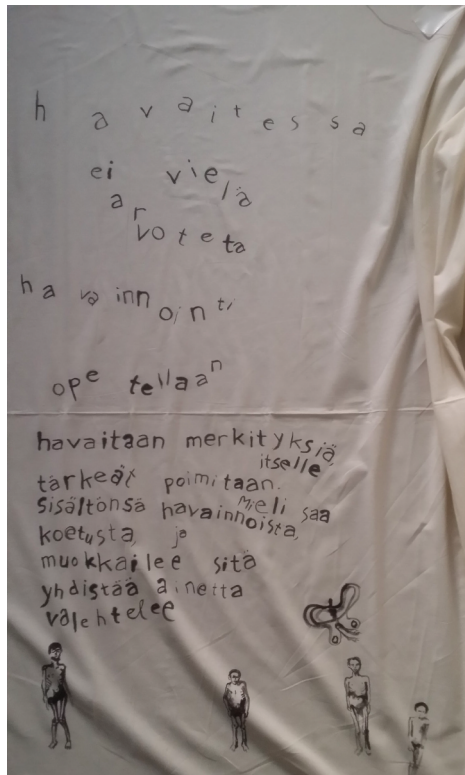 havaitessa
ei vielä
arvoteta
havainnointi
opetellaan
havaitaan merkityksiä,
itselle
tärkeät poimitaan.
Mieli saa
sisältönsä havainnoista,
koetusta, ja
muokkailee sitä
yhdistää ainetta
valehtelee